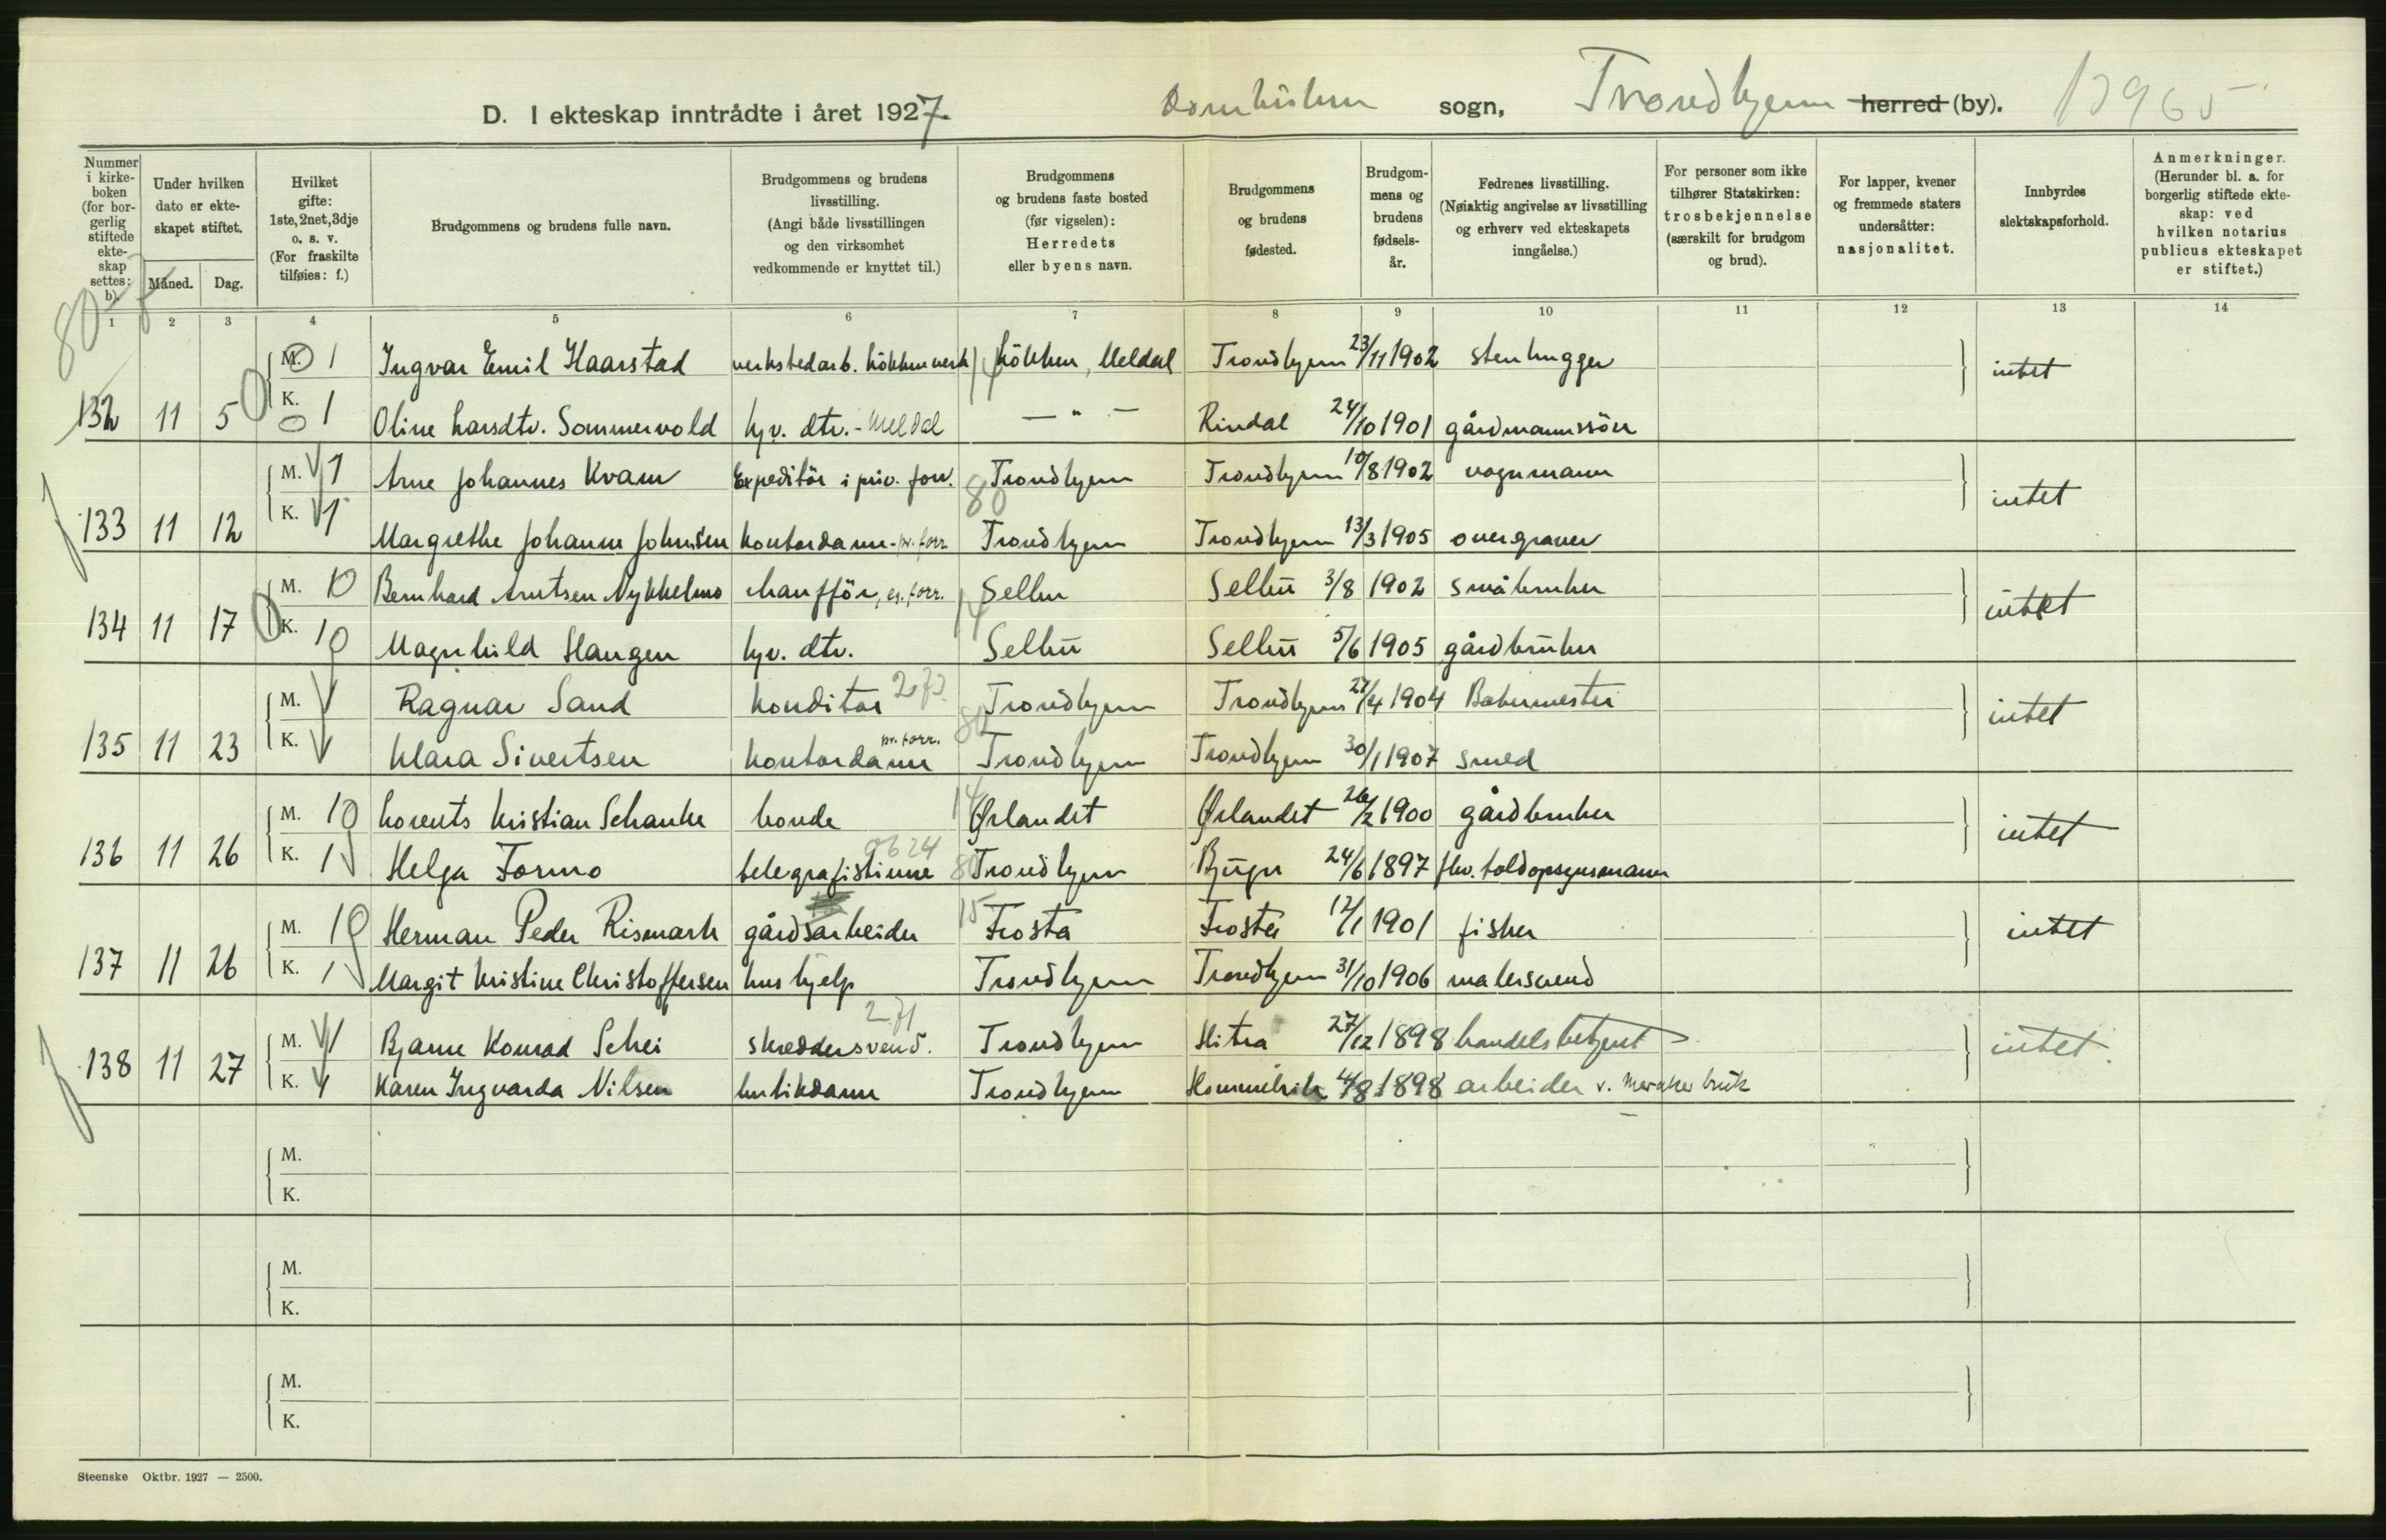 D. I ekteskap inntrådte i året 1927. Domkirken sogn, Trondhjem herred (by). 13965
Nummer i kirkeboken (for borgerlig stiftede ekteskap settes: b).
Under hvilken dato er ekteskapet stiftet.
Måned. Dag.
Hvilket gifte: 1ste, 2net, 3dje o. s. v. (For fraskilte tilføies: f.)
Brudgommens og brudens fulle navn.
Brudgommens og brudens livsstilling. (Angi både livsstillingen og den virksomhet vedkommende er knyttet til.)
Brudgommens og brudens faste bosted (før vigselen): Herredets eller byens navn.
Brudgommens og brudens fødested.
Brudgommens og brudens fødselsår.
Fedrenes livsstilling. (Nøiaktig angivelse av livsstilling og erhverv ved ekteskapets inngåelse.)
For personer som ikke tilhører Statskirken: trosbekjennelse (særskilt for brudgom og brud).
For lapper, kvener og fremmede staters undersåtter: nasjonalitet.
Innbyrdes slektskapsforhold.
Anmerkninger. (Herunder bl. a. for borgerlig stiftede ekteskap: ved hvilken notarius publicus ekteskapet er stiftet.)
1 2 3 4 5 6 7 8 9 10 11 12 13 14
M. 1 Ingvar Emil Haarstad verkstedarb. Løkken verk Løkken, Meldal Trondhjem 23/11 1902 stenhugger intet
132 11 5 K. 1 Oline Larsdtr. Sommervold hjv. dtr. - Meldal — " — Rindal 24/10 1901 gårdmannssön
M. 1 Arne Johannes Kvam Expeditör i priv. forr. 80 Trondhjem Trondhjem 10/8 1902 vognmann intet
133 11 12 K. 1 Margrethe Johanne Johnsen kontordame - pr. forr. Trondhjem Trondhjem 13/3 1905 overgraver
M. 10 Bernhard Arntsen Nykkelmo chaufför, eg. forr. Selbu Selbu 3/8 1902 småbruker intet
134 11 17 K. 10 Magnhild Haugen hjv. dtr. Selbu Selbu 5/6 1905 gårdbruker
M. Ragnar Sand konditor Trondhjem Trondhjem 27/4 1904 Bakermester intet
135 11 23 K. Klara Sivertsen kontordame pr. forr. Trondhjem Trondhjem 30/1 1907 smed
M. 10 Lorents Kristian Schanke bonde 14 Ørlandet Ørlandet 26/2 1900 gårdbruker intet
136 11 26 K. 1 Helga Formo telegrafistinne 80 Trondhjem Bjugn 24/6 1897 fhv. toldopsynsmann
M. 10 Herman Peder Rismark gårdsarbeider 15 Frosta Frosta 12/1 1901 fisker intet
137 11 26 K. 1 Margit Kristine Christoffersen hushjelp Trondhjem Trondhjem 31/10 1906 malersvend
M. 1 Bjarne Konrad Schei skreddersvend. 271 Trondhjem Hitra 27/12 1898 handelsbetjent intet.
138 11 27 K. 1 Karen Ingvarda Nilsen butikdame Trondhjem Hommelvik 4/8 1898 arbeider v. Meraker bruk
M.
K.
M.
K.
M.
K.
Steenske Oktbr. 1927 — 2500.